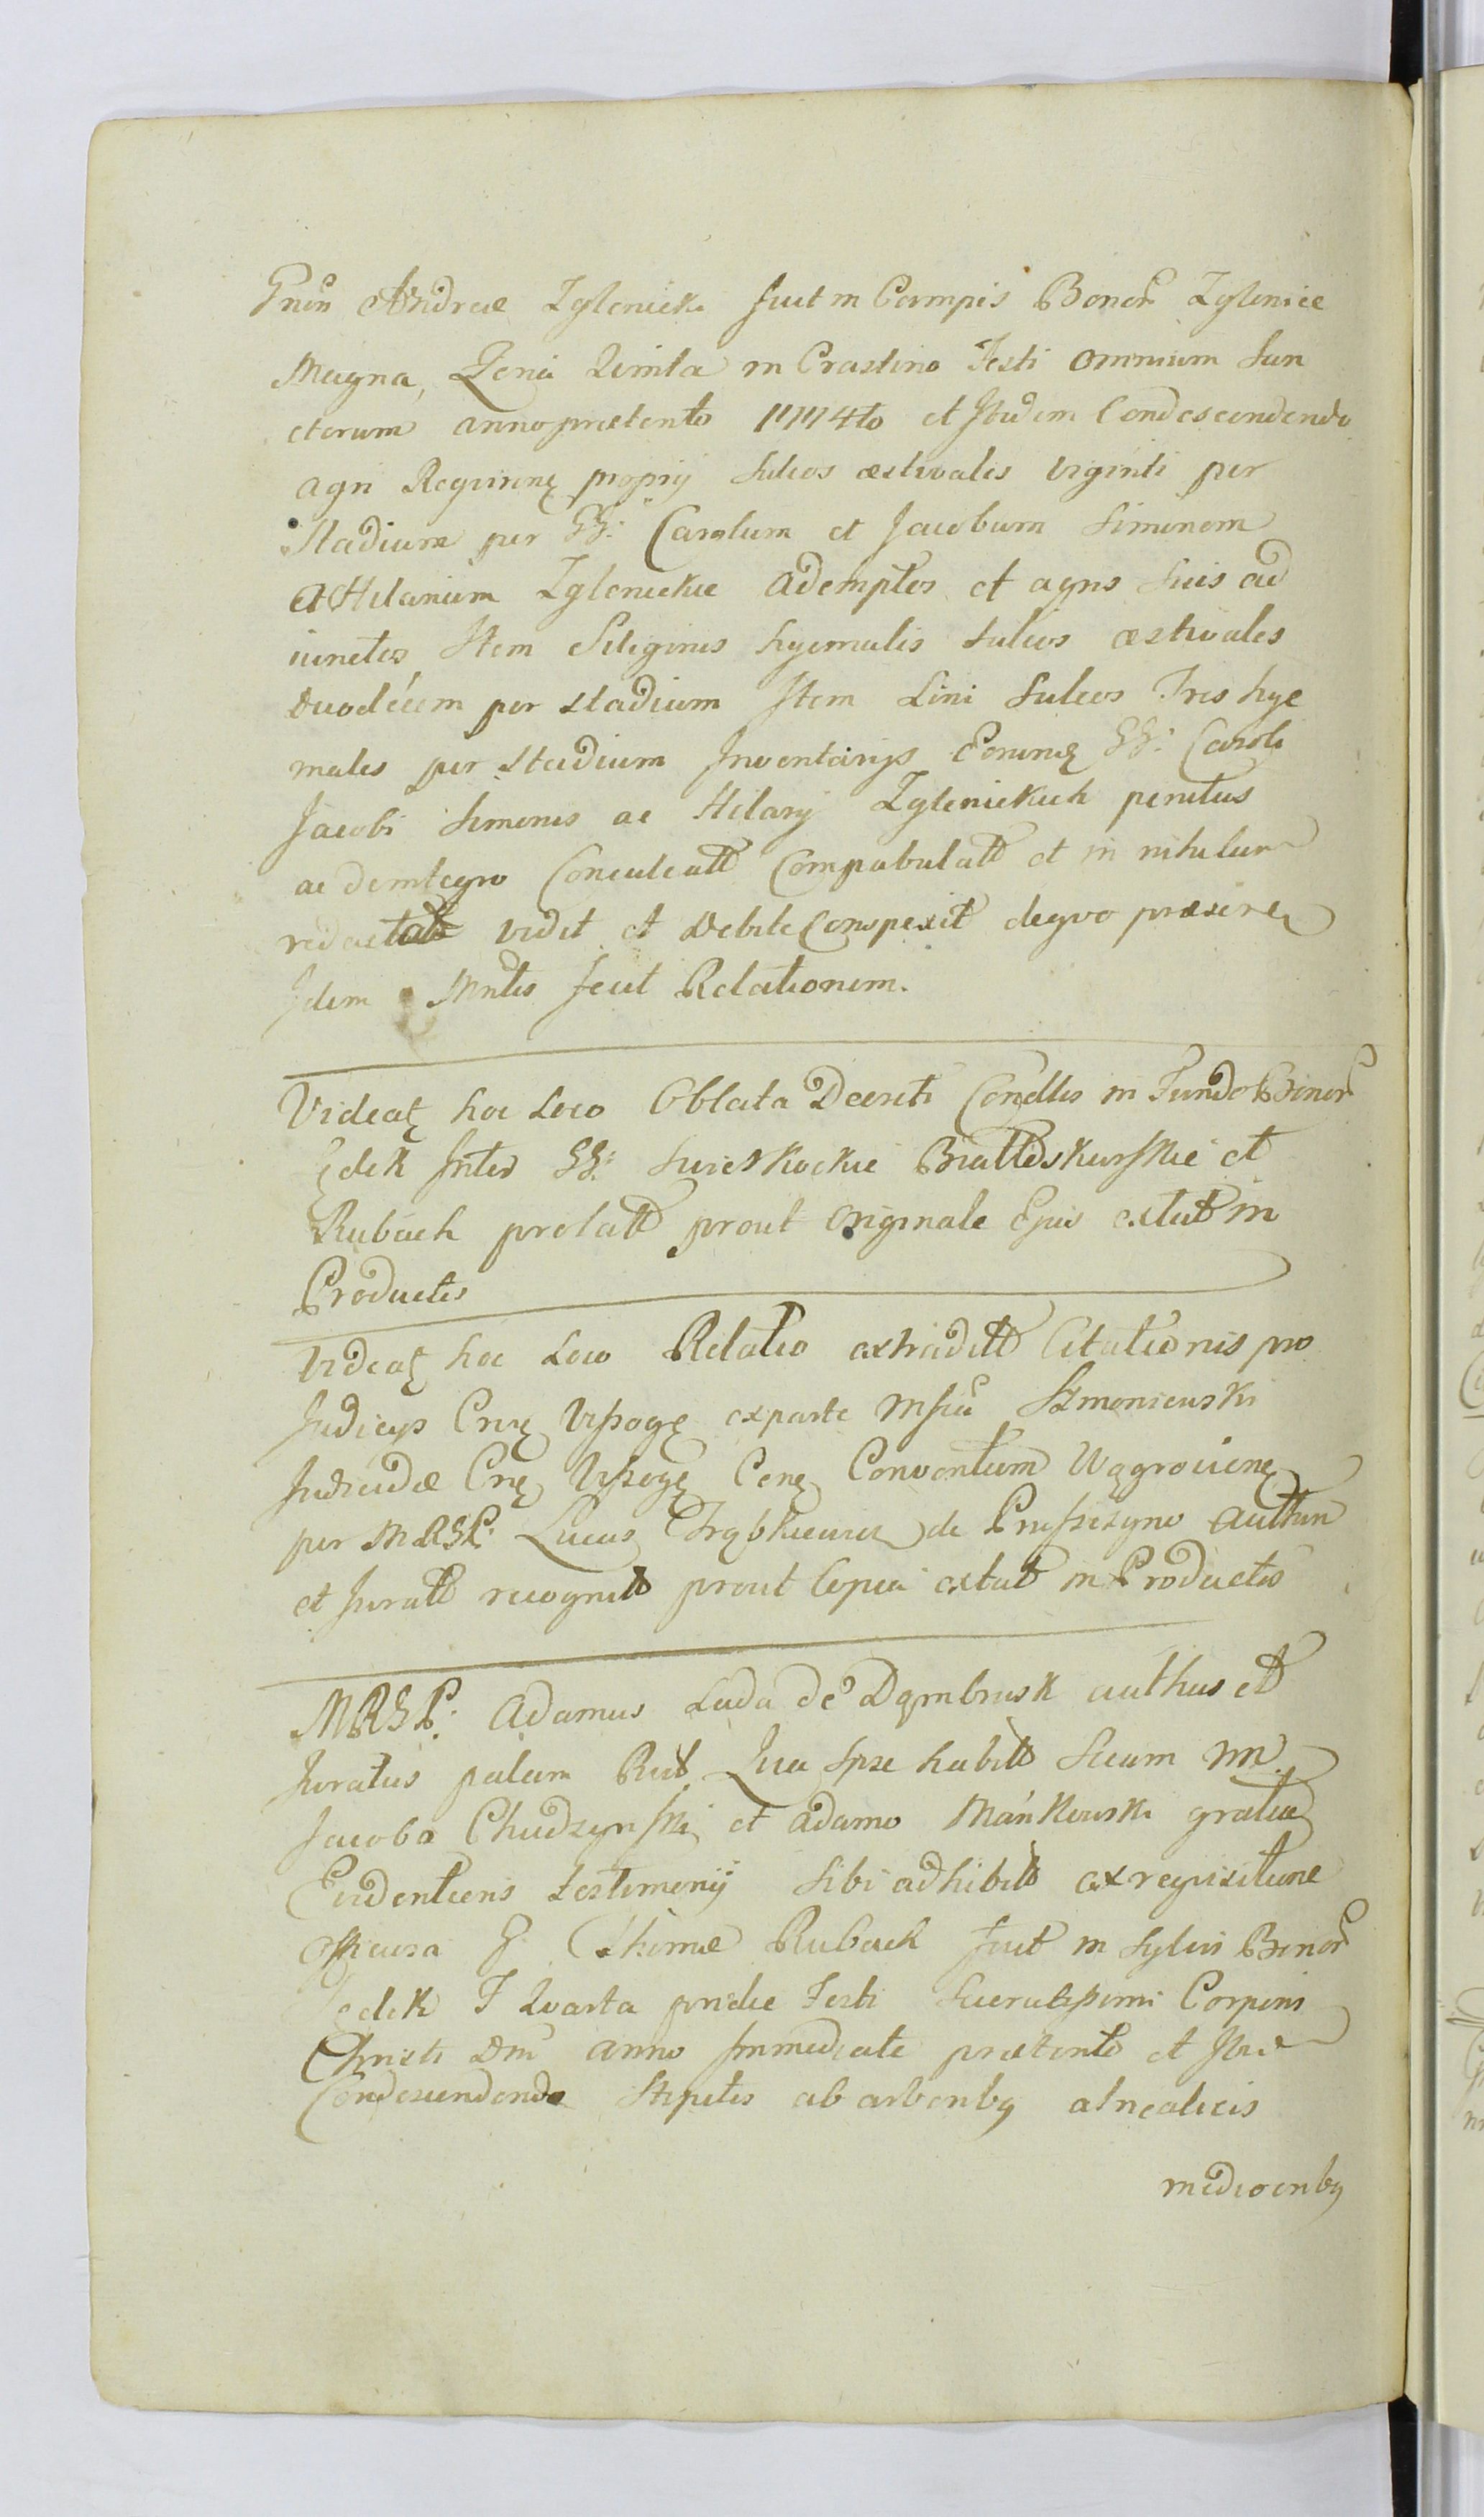 Gnen Andreae Zglenicki fuit in Campis Bonor Zglenice
Magna, Feria Quinta in Crastino Festi Omnium San
ctorum anno praetento 17174to et Ibidem Condescendendo
agri Requirenę proprij Sulcos aestivales Viginti per
Stadium per GG: Carolum et Jacobum Simonem
et Hilarium Zglenickie ademptos et agris suis ad
iunctos Item Siliginis hyemalis sulcos aestivales
duodecem per stadium Item Lini Sulcos Tres hye
males per Stadium Inventarijs Eorund GG: Caroli
Jacobi Simonis ac Hilarij Zglenickich penitus
ac deintegro Conculcatt Compabulatt et in nihilum
redactatt vidit et debite Conspexit dequo praesine
Idem Mntis fecit Relationem.
Videatę hoc Loco Oblata Decreti Condtis in Fundo Bonor
Gdek Inter GG: Swieskockie et
Rubach prolatt prout Originale Ejus extat in
Productis
Videatę hoc Loco Relatio extraditt Citationis pro
Judicys Crnę Vyssogę exparte Mfici Szmoniewski
Judicidae Crnę Vyssogę Cenę Conventum Wągroviene
per MRGP: Lucas de authen
et Juratt recognitt prout Copia extat in Productis
MRGP: Adamus Lada de Dąmbrusk authus et
Juratus palam Rect Quia Ipse habitt Secum nn.
Jacobo Chudzynski et adamo Mańkowski gratia
Evidentioris testimonij Sibi adhibitt ex requisitione
officiosa G. Thomae Rubach fuit in Sylvis Bonor
Gdek F Quarta pridie Festi Sacratissimi Corporis
Christi Dni anno Immediate praetento et Ibid
Condescendendo Stipites ab arboribq alnealicis
mediocribq